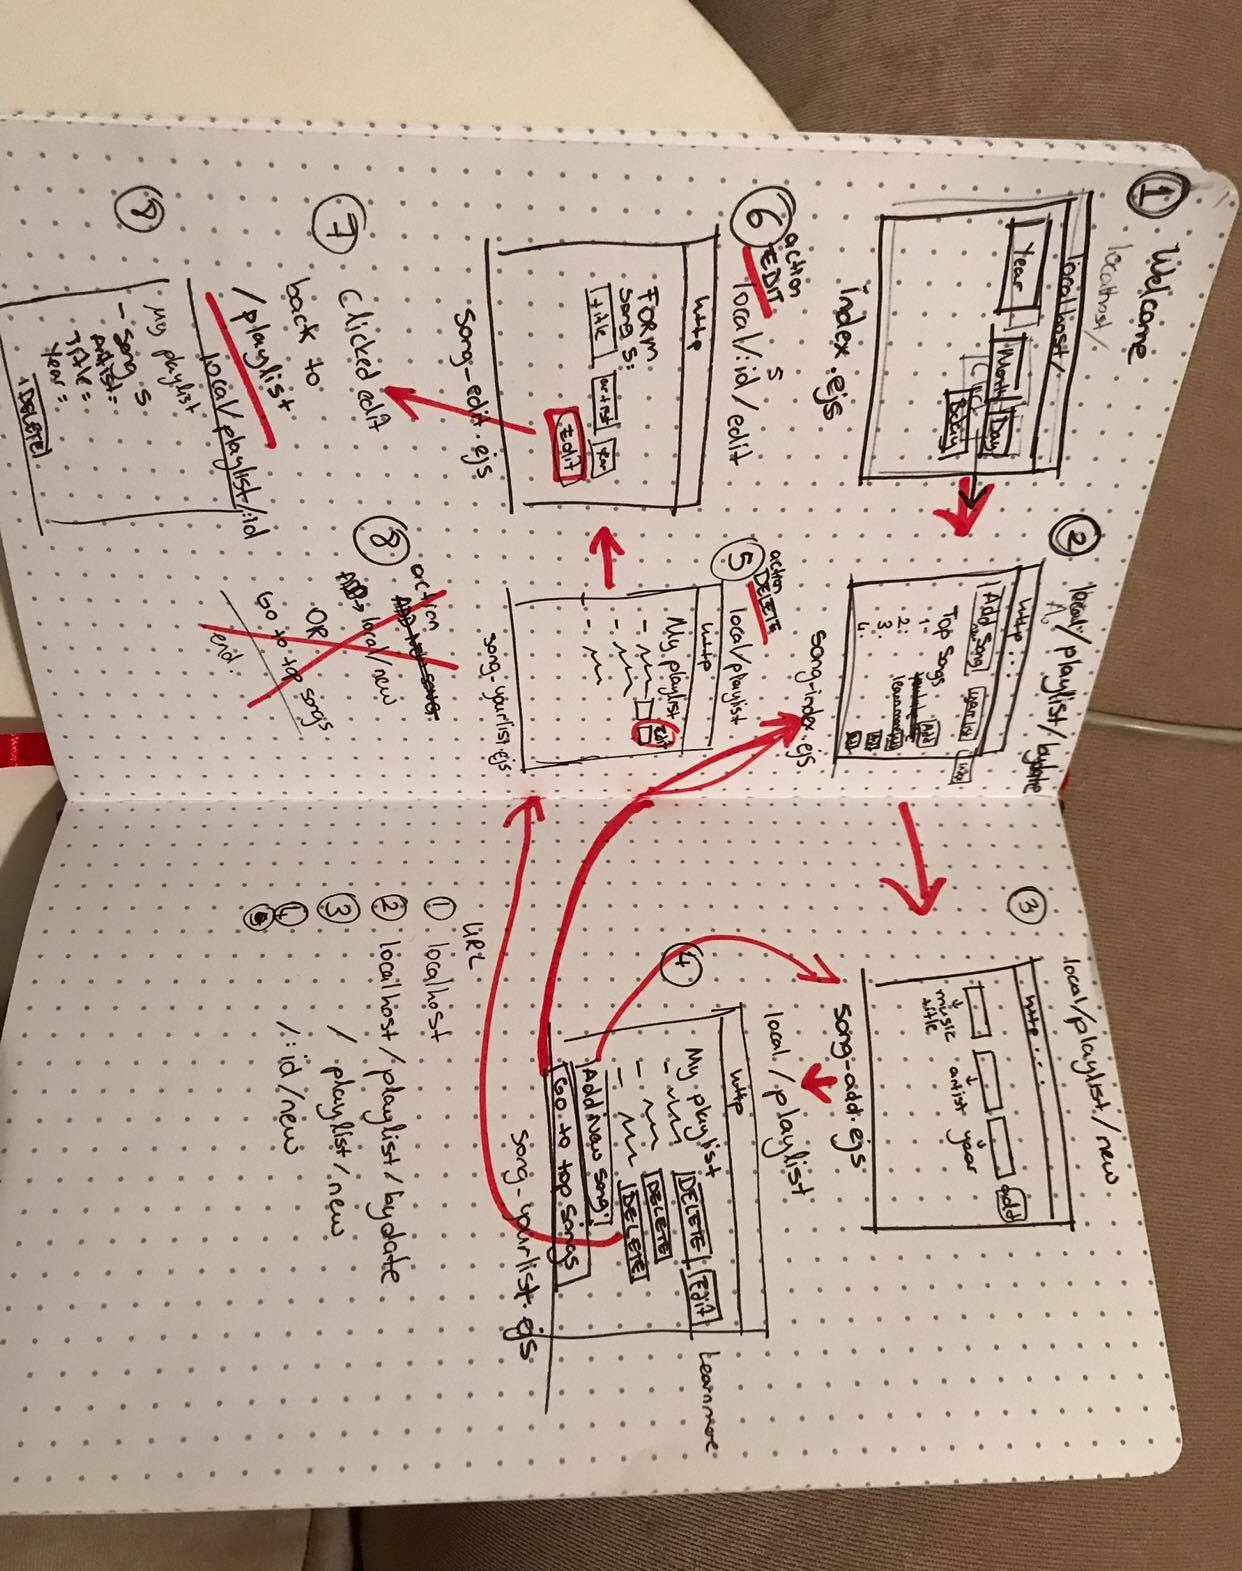 1 Welcome
localhost/
localhost/
Year
Month
Day
index.ejs
2 local/playlist/bydate
http...
Add Song
Top Songs
1.
2.
3
4.
Add
song-index.ejs
3
local/playlist/new
http...
music title
artist
year
add
song-add.ejs
4
local/playlist
http
My playlist
DELETE
Edit
DELETE
DELETE
Add New Song
Go to top songs
Learn more
song-yourlist.ejs
5
action
DELETE
local/playlist
http
My playlist
edit
song-yourlist.ejs
6
action
EDIT
local/:id/edit
http
FORM
Song s:
title
artist
Edit
song-edit.ejs
7
Clicked edit
back to
/playlist
8
action
ADD → local/new
OR
Go to top songs
end.
9
local/playlist/:id
My playlist
- Song s
Artist =
Title =
Year =
DELETE
URL
1 localhost
2 localhost/playlist/bydate
3 / playlist/new
4 /:id/new